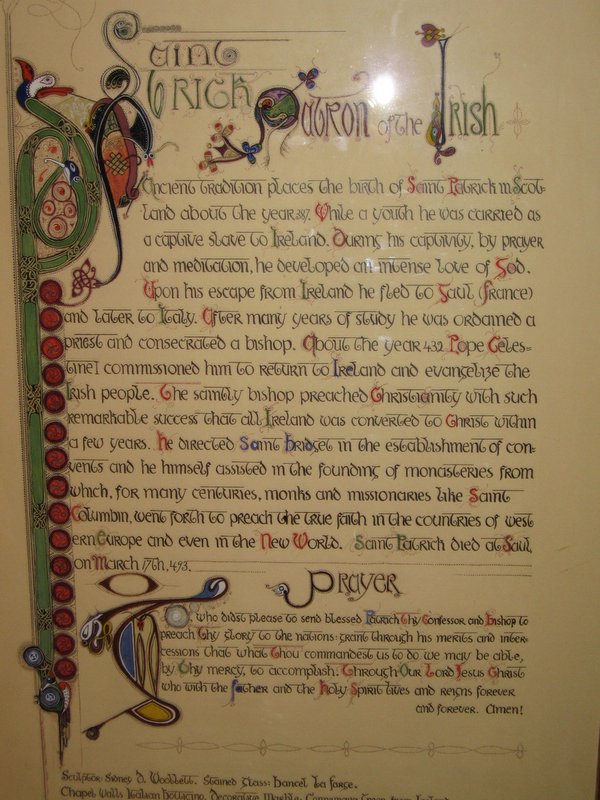 Saint
Patrick Patron of the Irish
Ancient tradition places the birth of Saint Patrick in Scot-
land about the year 387. While a youth he was carried as
a captive slave to Ireland. During his captivity, by prayer
and meditation, he developed an intense love of God.
Upon his escape from Ireland he fled to Gaul (France)
and later to Italy. After many years of study he was ordained a
priest and consecrated a bishop. About the year 432 Pope Celes-
tine I commissioned him to return to Ireland and evangelize the
Irish people. The saintly bishop preached Christianity with such
remarkable success that all Ireland was converted to Christ within
a few years. He directed Saint Bridget in the establishment of con-
vents and he himself assisted in the founding of monasteries from
which, for many centuries, monks and missionaries like Saint
Columbin, went forth to preach the true faith in the countries of west
ern Europe and even in the New World. Saint Patrick died at Saul,
on March 17th, 493.
Prayer
who didst please to send blessed Patrick Thy Confessor and Bishop to
preach Thy glory to the nations: grant through his merits and inter-
cessions that what Thou commandest us to do we may be able,
by Thy mercy, to accomplish. Through Our Lord Jesus Christ
who with the Father and the Holy Spirit lives and reigns forever
and forever. Amen!
Sculptor: Sidney D. Woollett. Stained Glass: Dancel La Farge.
Chapel Walls Italian Botticino. Decorative Marble: Connemara Green from Ireland